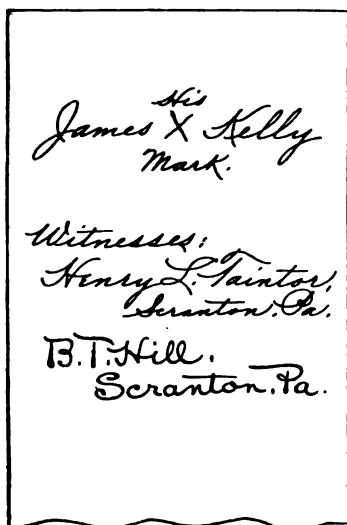 His
James X Kelly
Mark.
Witnesses:
Henry L. Taintor,
Scranton, Pa.
B.T. Hill.
Scranton, Pa.